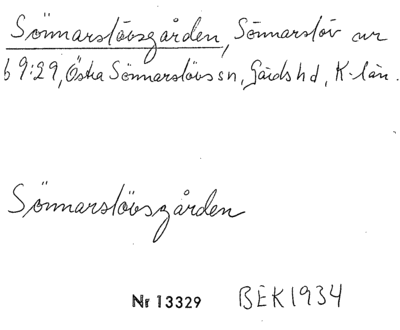 Sönnarslövsgården, Sönnarslöv nr
69:29, Östra Sönnarslövs sn, Gärds hd, K-län.
Sönnarslövsgården
Nr 13329 BEK1934